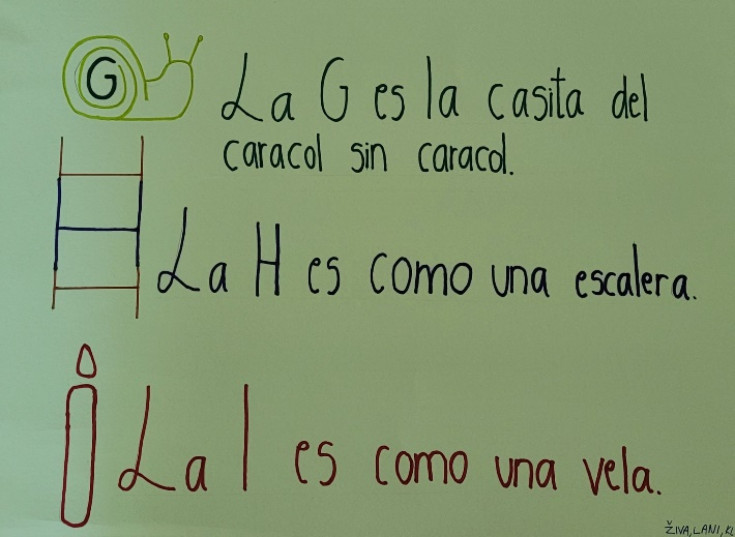 G
La G es la casita del
caracol sin caracol.
La H es como una escalera.
La I es como una vela.
ŽIVA, LANI,